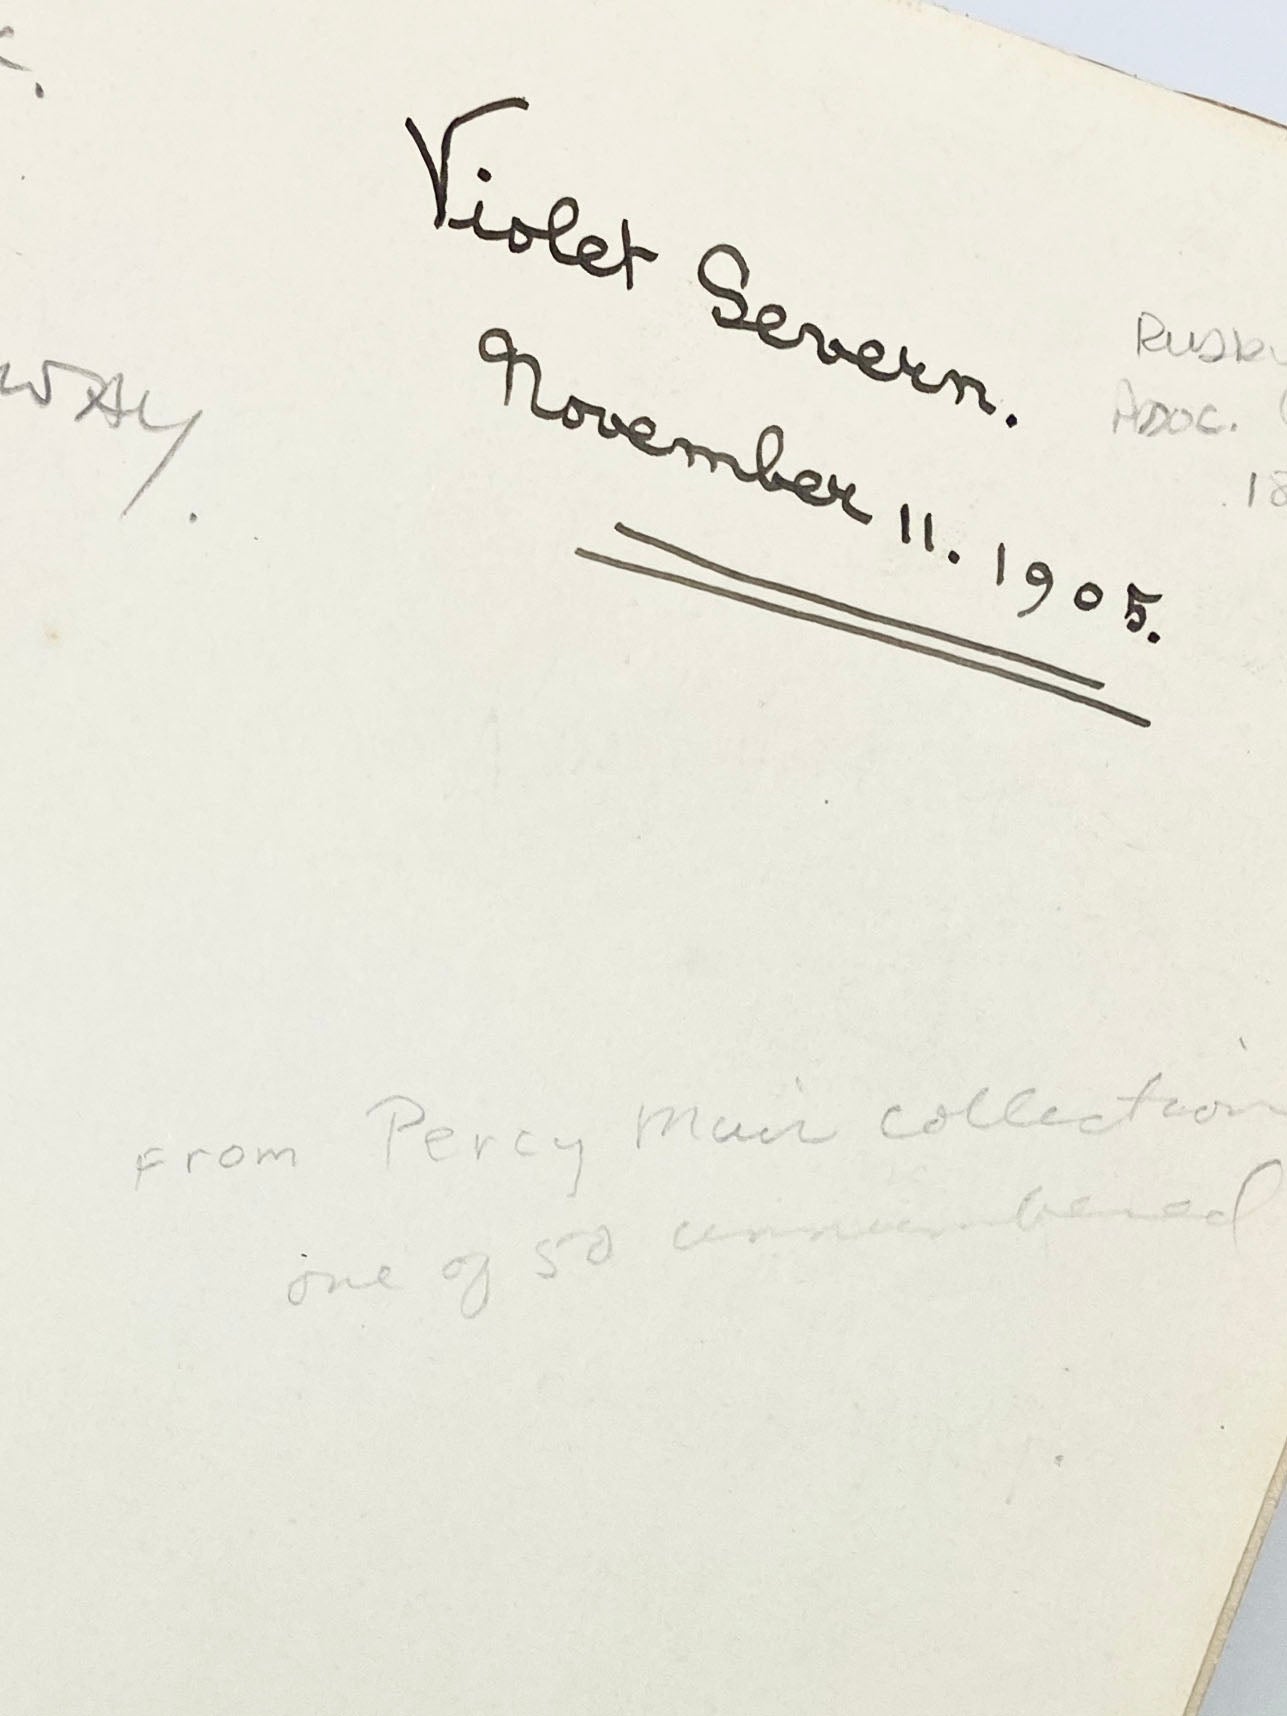 Violet Severn.
November 11. 1905.
from Percy Muir collection
one of 50 unnumbered